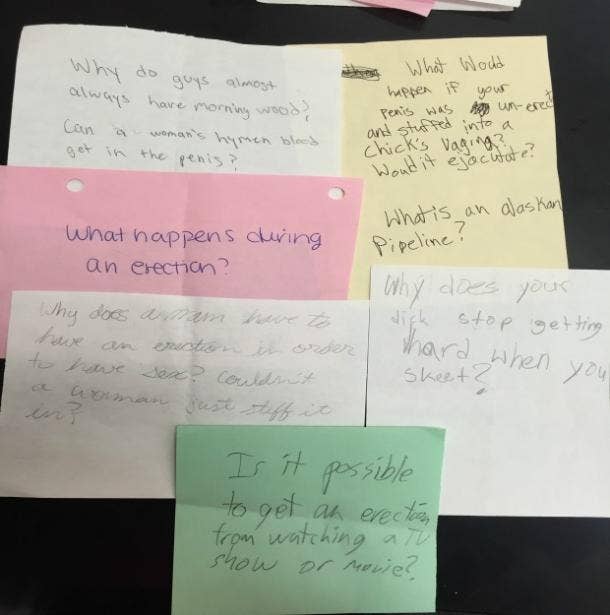 Why do guys almost
always have morning wood?
Can a woman's hymen blood
get in the penis?
What Woud
happen if your
penis was un-erect
and stuffed into a
chick's vagina?
Would it ejaculate?
What is an alaskan
Pipeline?
What happens during
an erection?
Why does a man have to
have an erection in order
to have sex? Couldn't
a woman just stuff it
in?
Why does your
dick stop getting
hard when you
skeet?
Is it possible
to get an erection
from watching a TV
show or movie?